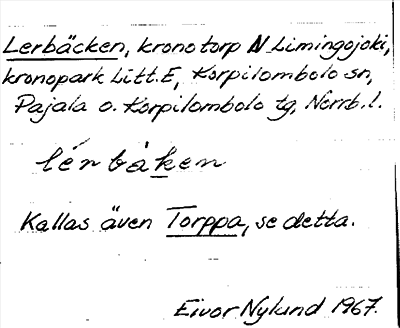 Lerbäcken, kronotorp N Limingojoki,
kronopark Litt. E, Korpilombolo sn,
Pajala o. Korpilombolo tg, Norrb. l.
lérbäken
Kallas även Torppa, se detta.
Eivor Nylund 1967.